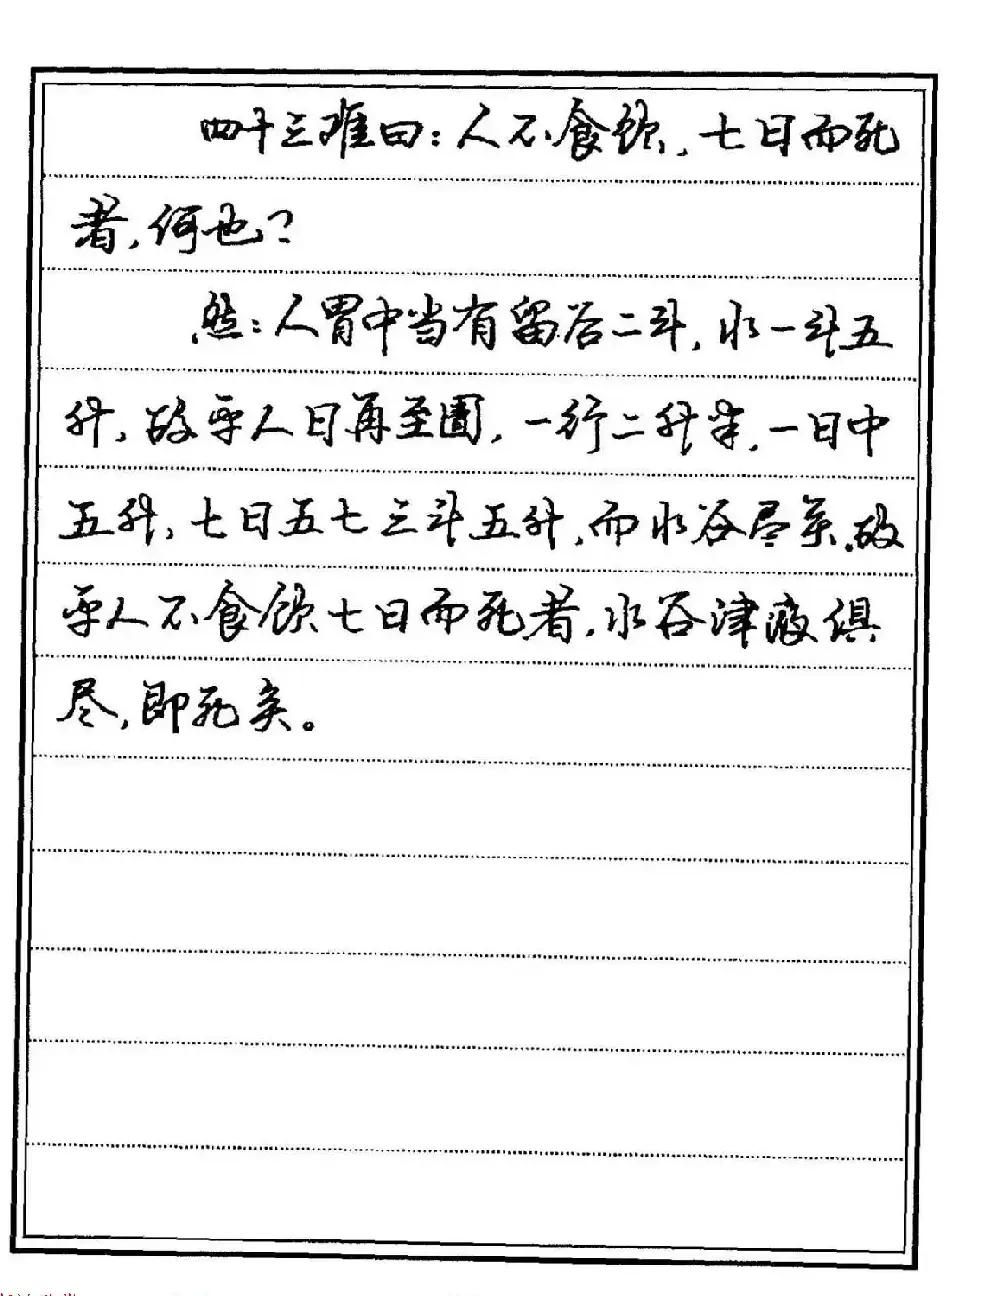 四十三难曰：人不食饮，七日而死
者，何也？
然：人胃中当有留谷二斗，水一斗五
升，故平人日再至圊，一行二升半，一日中
五升，七日五七三斗五升，而水谷尽矣。故
平人不食饮七日而死者，水谷津液俱
尽，即死矣。